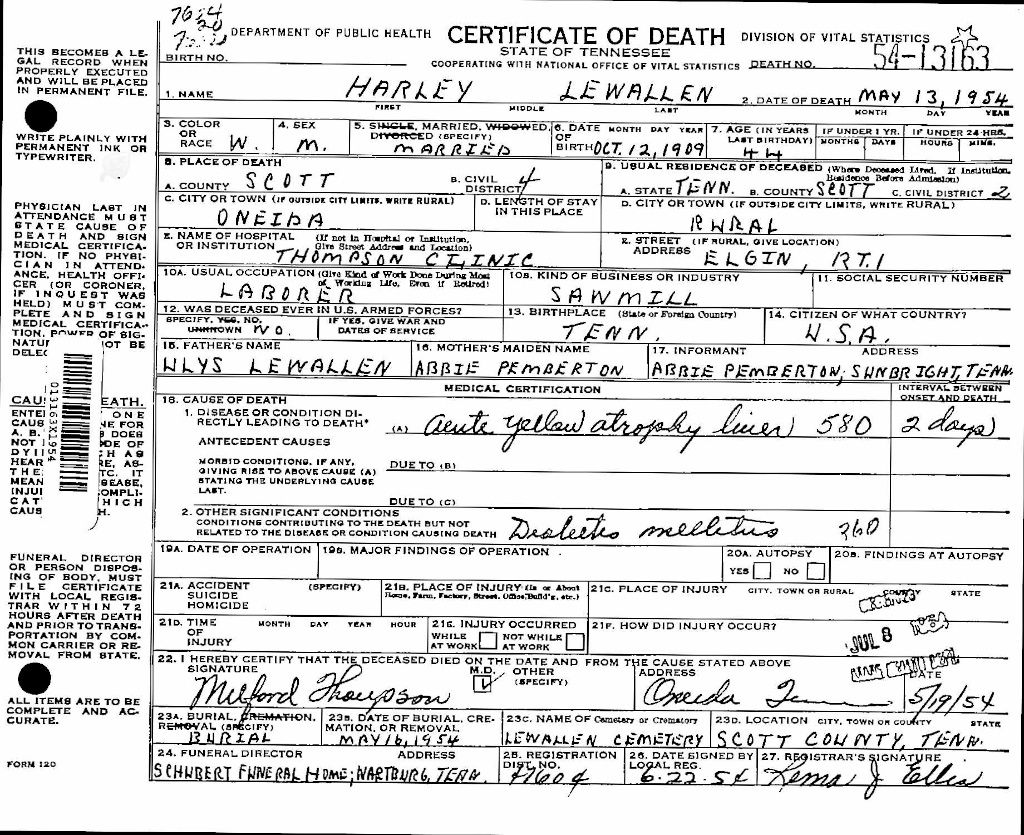 7604
20
DEPARTMENT OF PUBLIC HEALTH CERTIFICATE OF DEATH DIVISION OF VITAL STATISTICS
STATE OF TENNESSEE
BIRTH NO. COOPERATING WITH NATIONAL OFFICE OF VITAL STATISTICS DEATH NO. 54-13163
THIS BECOMES A LE-
GAL RECORD WHEN
PROPERLY EXECUTED
AND WILL BE PLACED
IN PERMANENT FILE.
WRITE PLAINLY WITH
PERMANENT INK OR
TYPEWRITER.
PHYSICIAN LAST IN
ATTENDANCE MUST
STATE CAUSE OF
DEATH AND SIGN
MEDICAL CERTIFICA-
TION. IF NO PHYSI-
CIAN IN ATTEND-
ANCE, HEALTH OFFI-
CER (OR CORONER,
IF INQUEST WAS
HELD) MUST COM-
PLETE AND SIGN
MEDICAL CERTIFICA-
TION. POWER OF SIG-
NATUR OT BE
DELEC
CAU EATH.
ENTEI ONE
CAUS NE FOR
A. B. DOES
NOT DE OF
DYII H AS
HEAR RE, AS-
THE TC. IT
MEAN SEASE,
INJUI OMPLI-
CAT HICH
CAUS H.
013163X1954
FUNERAL DIRECTOR
OR PERSON DISPOS-
ING OF BODY, MUST
FILE CERTIFICATE
WITH LOCAL REGIS-
TRAR WITHIN 72
HOURS AFTER DEATH
AND PRIOR TO TRANS-
PORTATION BY COM-
MON CARRIER OR RE-
MOVAL FROM STATE.
ALL ITEMS ARE TO BE
COMPLETE AND AC-
CURATE.
FORM 120
1. NAME HARLEY LEWALLEN 2. DATE OF DEATH MAY 13, 1954
FIRST MIDDLE LAST MONTH DAY YEAR
3. COLOR OR RACE W. 4. SEX M. 5. SINGLE, MARRIED, WIDOWED, DIVORCED (SPECIFY) MARRIED 6. DATE OF BIRTH MONTH DAY YEAR OCT. 12, 1909 7. AGE (IN YEARS LAST BIRTHDAY) 44 IF UNDER 1 YR. MONTHS DAYS IF UNDER 24 HRS. HOURS MINS.
8. PLACE OF DEATH 9. USUAL RESIDENCE OF DECEASED (Where Deceased Lived. If Institution, Residence Before Admission)
A. COUNTY SCOTT B. CIVIL DISTRICT 4 A. STATE TENN. B. COUNTY SCOTT C. CIVIL DISTRICT 2
C. CITY OR TOWN (IF OUTSIDE CITY LIMITS, WRITE RURAL) ONEIDA D. LENGTH OF STAY IN THIS PLACE D. CITY OR TOWN (IF OUTSIDE CITY LIMITS, WRITE RURAL) RURAL
E. NAME OF HOSPITAL OR INSTITUTION (If not in Hospital or Institution, Give Street Address and Location) THOMPSON CLINIC E. STREET ADDRESS (IF RURAL, GIVE LOCATION) ELGIN, RT. 1
10A. USUAL OCCUPATION (Give Kind of Work Done During Most of Working Life, Even if Retired) LABORER 10B. KIND OF BUSINESS OR INDUSTRY SAWMILL 11. SOCIAL SECURITY NUMBER
12. WAS DECEASED EVER IN U.S. ARMED FORCES? SPECIFY, YES, NO, UNKNOWN NO. IF YES, GIVE WAR AND DATES OF SERVICE 13. BIRTHPLACE (State or Foreign Country) TENN. 14. CITIZEN OF WHAT COUNTRY? U.S.A.
15. FATHER'S NAME 16. MOTHER'S MAIDEN NAME 17. INFORMANT ADDRESS
ULYS LEWALLEN ABBIE PEMBERTON ABBIE PEMBERTON, SUNBRIGHT, TENN.
MEDICAL CERTIFICATION INTERVAL BETWEEN ONSET AND DEATH
18. CAUSE OF DEATH
1. DISEASE OR CONDITION DI-
RECTLY LEADING TO DEATH* (A) Acute yellow atrophy liver 580 2 days
ANTECEDENT CAUSES
MORBID CONDITIONS. IF ANY,
GIVING RISE TO ABOVE CAUSE (A) DUE TO (B)
STATING THE UNDERLYING CAUSE
LAST.
DUE TO (C)
2. OTHER SIGNIFICANT CONDITIONS
CONDITIONS CONTRIBUTING TO THE DEATH BUT NOT
RELATED TO THE DISEASE OR CONDITION CAUSING DEATH Diabetes mellitus 260
19A. DATE OF OPERATION 19B. MAJOR FINDINGS OF OPERATION. 20A. AUTOPSY YES NO 20B. FINDINGS AT AUTOPSY
21A. ACCIDENT SUICIDE HOMICIDE (SPECIFY) 21B. PLACE OF INJURY (In or About Home, Farm, Factory, Street, Office, Build'g, etc.) 21C. PLACE OF INJURY CITY, TOWN OR RURAL COUNTY STATE
21D. TIME OF INJURY MONTH DAY YEAR HOUR 21E. INJURY OCCURRED WHILE AT WORK NOT WHILE AT WORK 21F. HOW DID INJURY OCCUR?
JUL 8 1954
22. I HEREBY CERTIFY THAT THE DECEASED DIED ON THE DATE AND FROM THE CAUSE STATED ABOVE
SIGNATURE M.D. OTHER (SPECIFY) ADDRESS DATE
Milford Thompson Oneida Tenn 5/19/54
23A. BURIAL, CREMATION, REMOVAL (SPECIFY) BURIAL 23B. DATE OF BURIAL, CRE-
MATION, OR REMOVAL MAY 16, 1954 23C. NAME OF Cemetery or Crematory LEWALLEN CEMETERY 23D. LOCATION CITY, TOWN OR COUNTY STATE SCOTT COUNTY, TENN.
24. FUNERAL DIRECTOR ADDRESS 25. REGISTRATION DIST. NO. 26. DATE SIGNED BY LOCAL REG. 27. REGISTRAR'S SIGNATURE
SCHUBERT FUNERAL HOME; WARTBURG, TENN. 7604 6-22-54 J Ellis